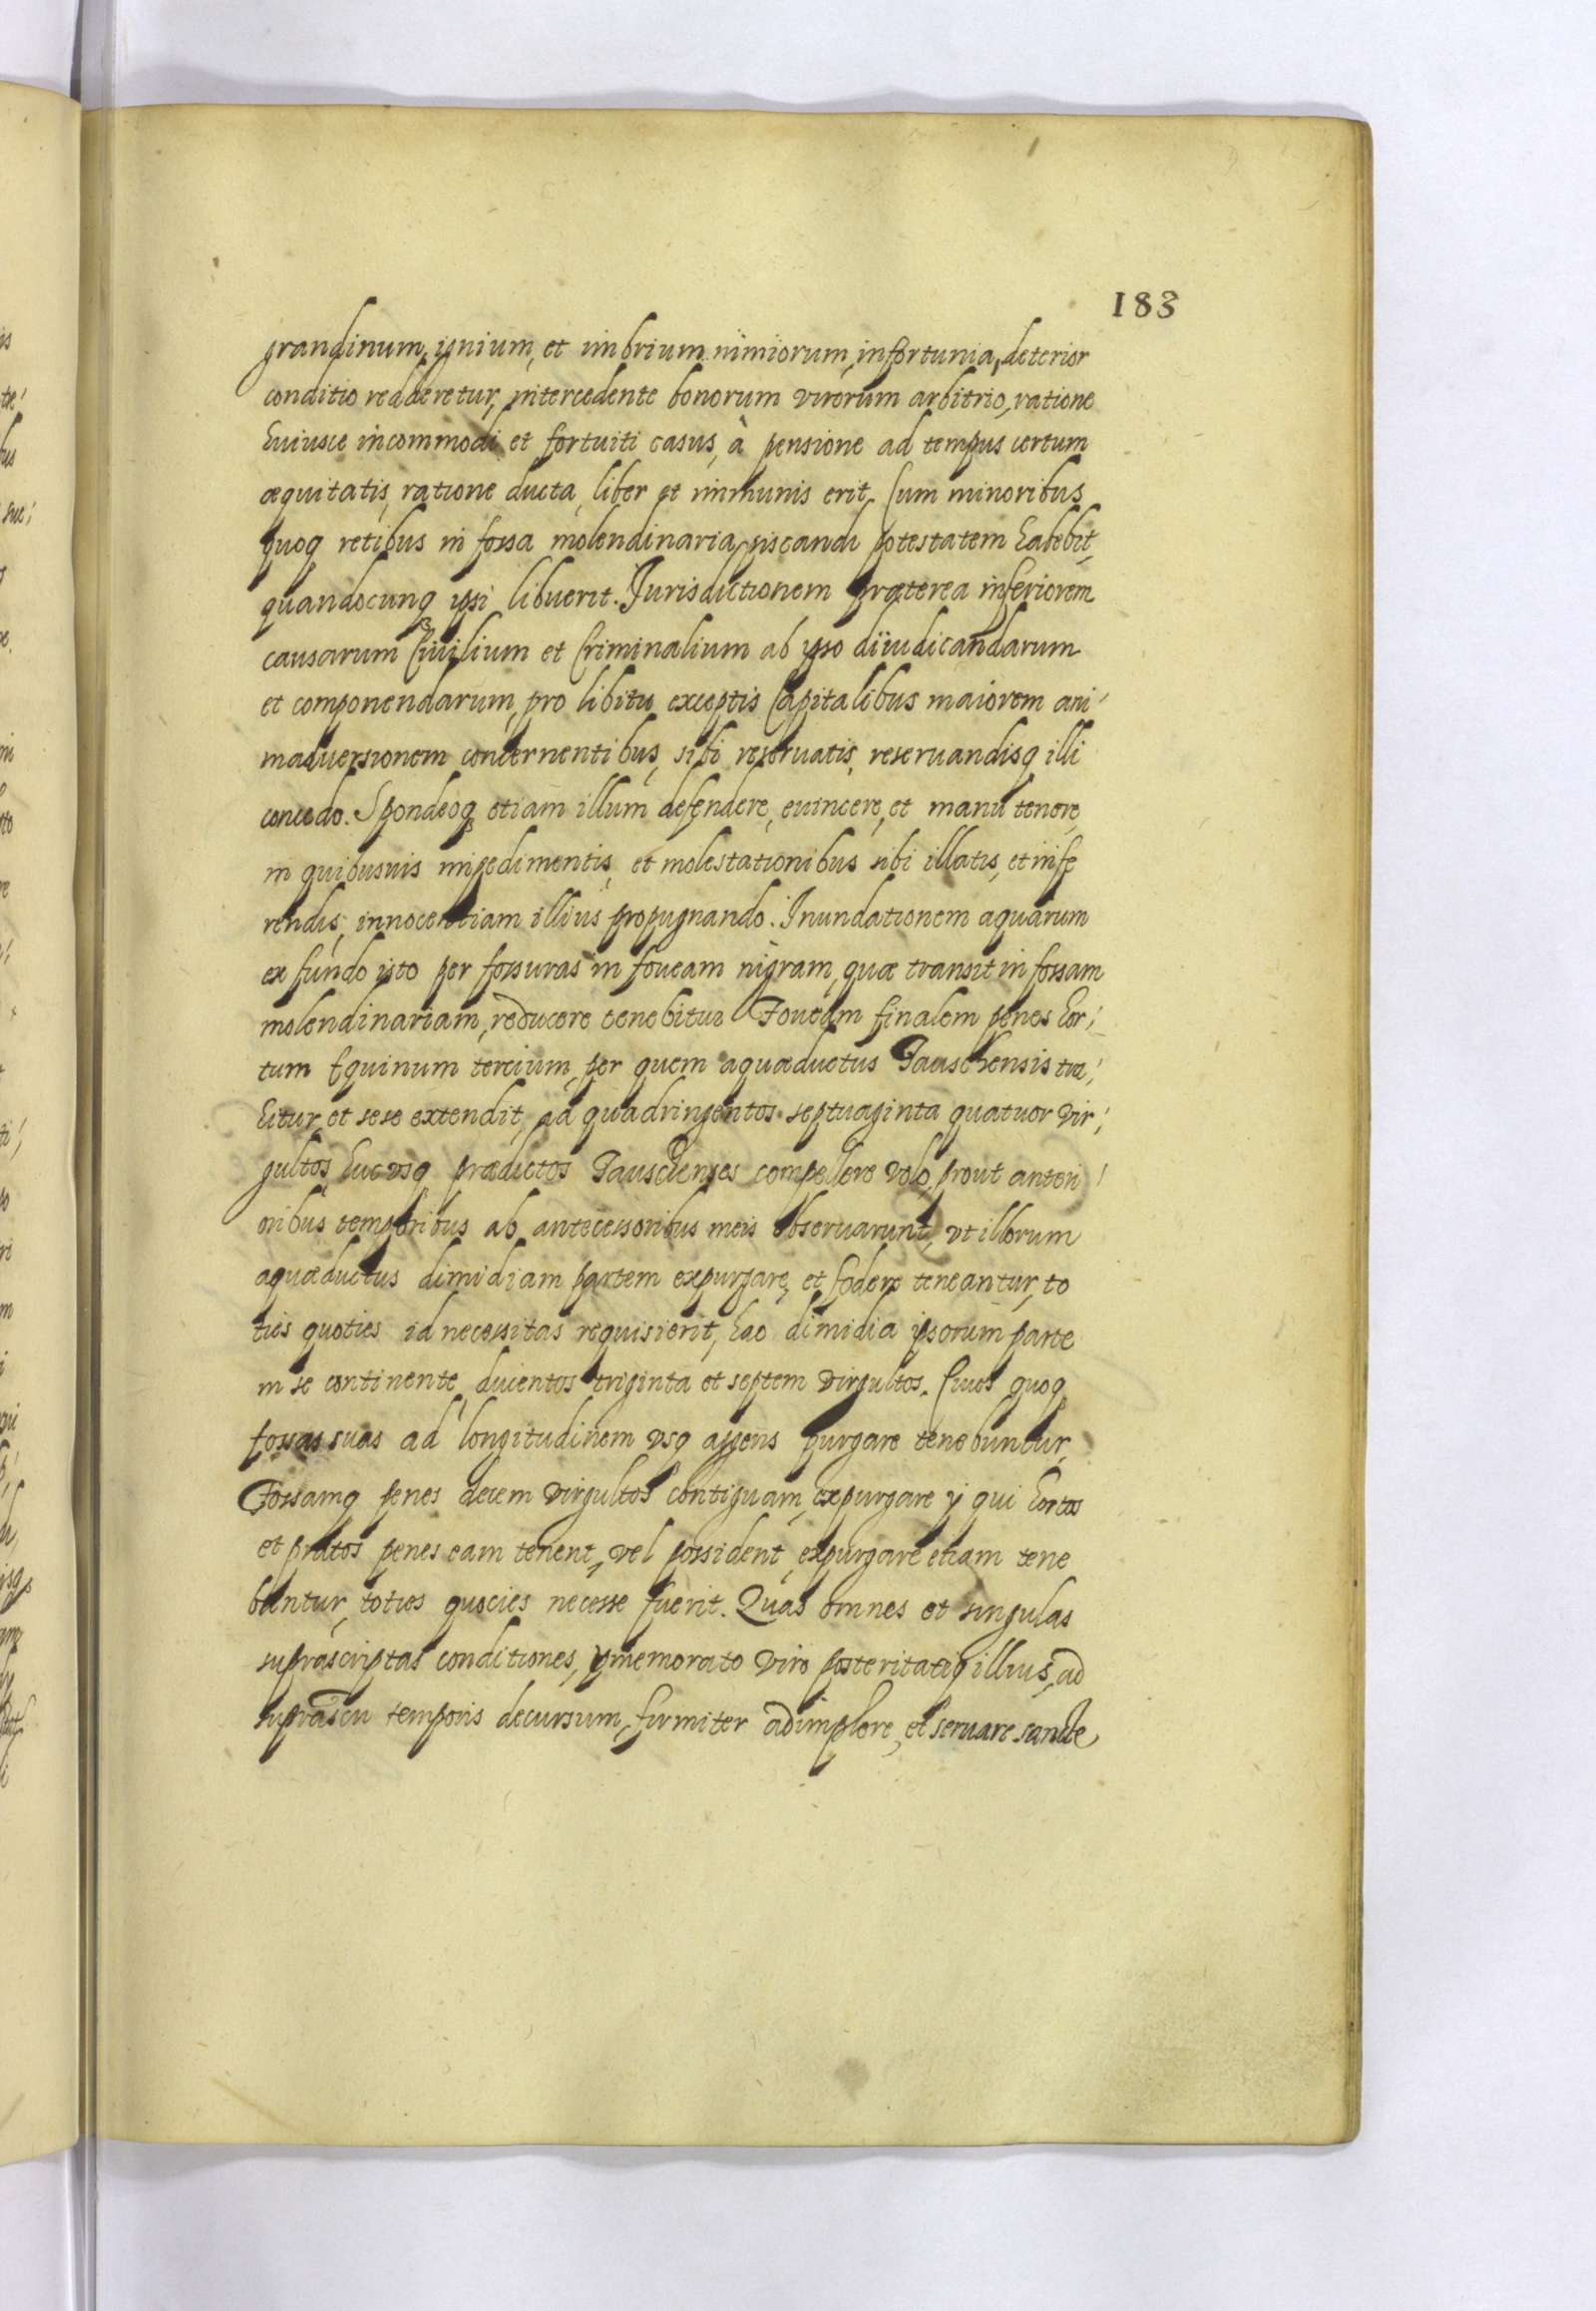 183
grandinum, ignium, et imbrium nimiorum, infortunia, deterior
conditio redderetur, intercedente bonorum virorum arbitrio, ratione
huiusce incommodi et fortuiti casus, à pensione ad tempus certum
æquitatis, ratione ducta, liber et immunis erit, Cum minoribus
quoq retibus in fossa molendinaria, piscandi potestatem habebit,
quandocunq ipsi libuerit. Jurisdictionem præterea inferiorem
causarum Ciuilium et Criminalium ab ipso diiudicandarum
et componendarum, pro libitu exceptis Capitalibus maiorem ani
maduersionem concernentibus, sibi reseruatis, reseruandisq illi
concedo. Spondeoq etiam illum defendere, euincere, et manu tenere,
in quibusuis impedimentis, et molestationibus sibi illatis, et infe
rendis, innocentiam illius propugnando. Inundationem aquarum
ex fundo isto per fossuras in foueam nigram, quæ transit in fossam
molendinariam, reducere tenebitur Foueam finalem penes hor;
tum Equinum tercium, per quem aquæductus Tauschensis tra;
hitur, et sese extendit, ad quadringentos septuaginta quatuor vir;
gultos huc vsq prædictos Tauschenses compellere volo, prout anteri
oribus temporibus ab antecessoribus meis obseruarunt, vt illorum
aquæductus dimidiam partem expurgare, et fodere teneantur, to
ties quoties id necessitas requisierit, hac dimidia ipsorum parte
in se continente, ducentos triginta et septem virgultos. Ciues quoq
fossas suas ad longitudinem vsq aggeris purgare tenebuntur,
Fossamq penes decem virgultos contiguam, expurgare ij qui hortos
et pratos penes eam tenent, vel possident, expurgare etiam tene
buntur, toties quocies necesse fuerit. Quas omnes et singulas
suprascriptas conditiones, ymemorato viro posteritatiq illius, ad
suprascri temporis decursum, firmiter adimplere, et seruare sancte